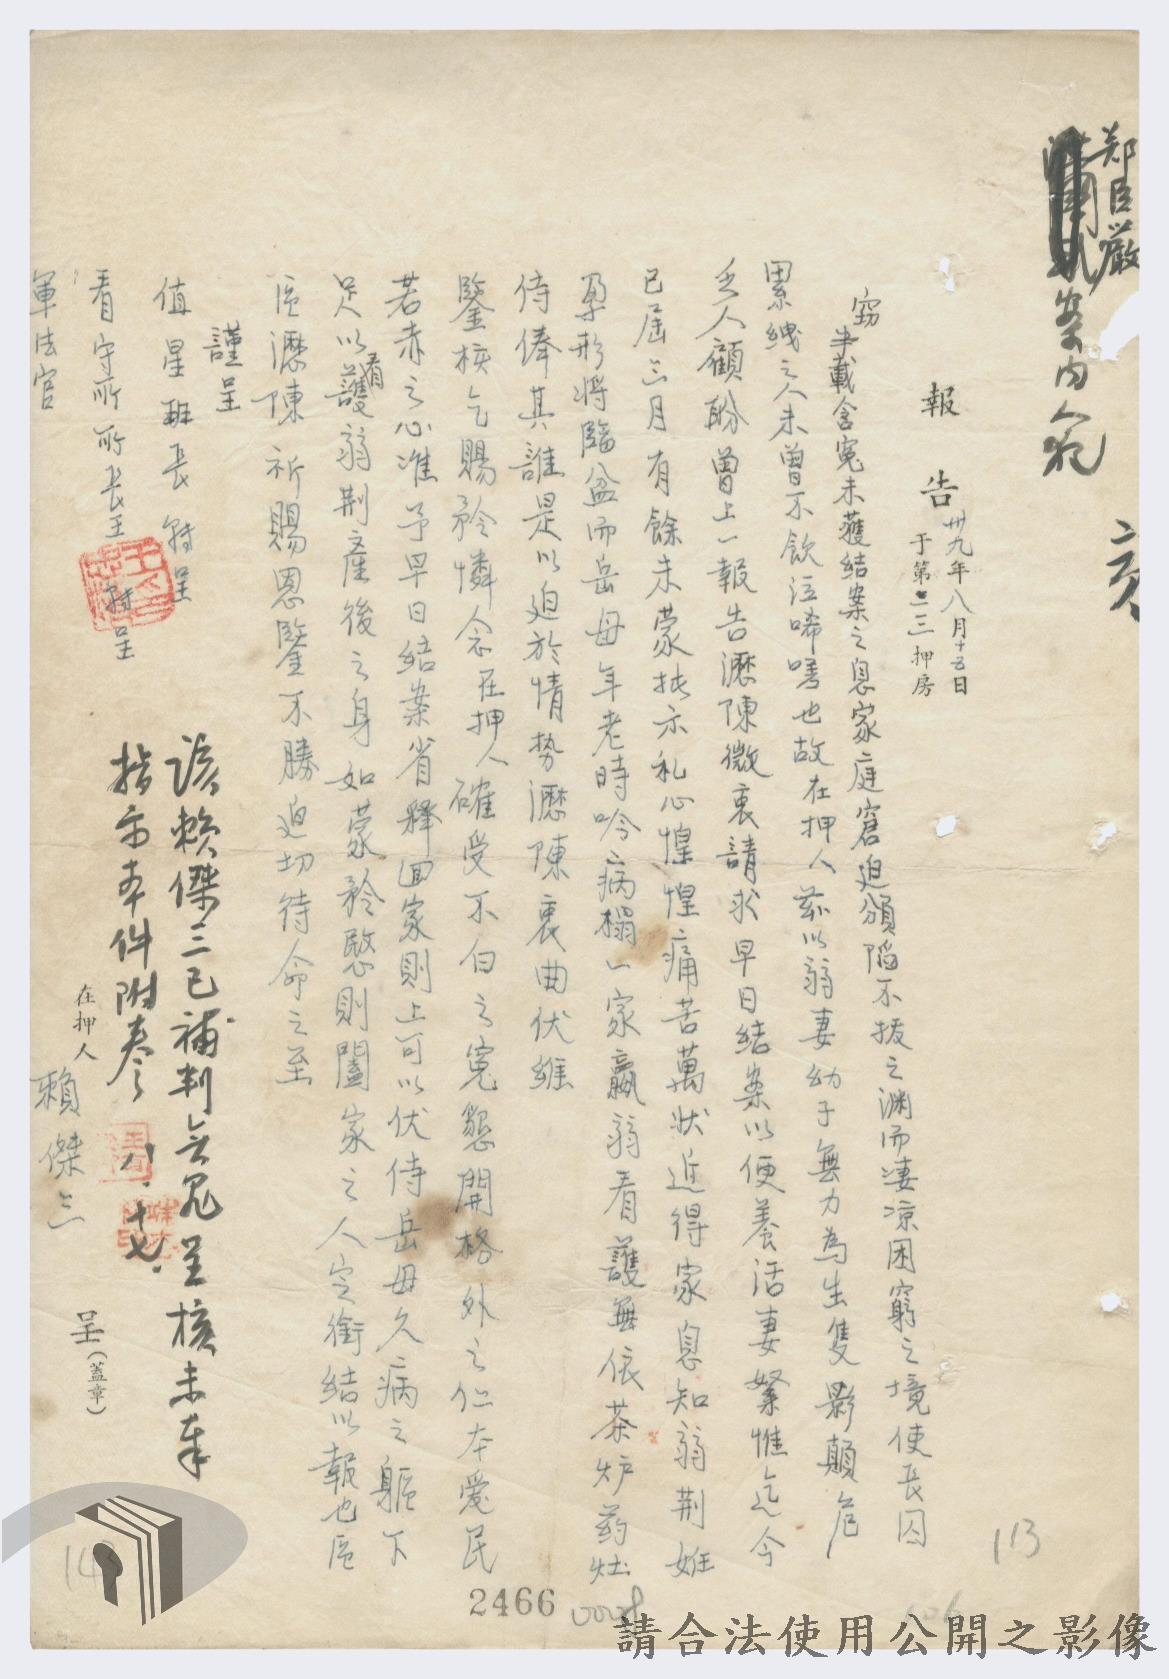 鄭臣嚴
案內人犯
報告
卅九年八月十五日
于第二三押房
竊半載含冤未獲結案之息家庭窘迫頻陷不拔之淵而淒凉困窮之境使長囚
累絏之人未曾不飲泣唏噓也故在押人茲以弱妻幼子無力為生隻影顛危
乏人顧盼曾上一報告瀝陳微衷請求早日結案以便養活妻孥惟迄今
已屆三月有餘未蒙批示私心惶惶痛苦萬狀近得家息知弱荆妊
孕形將臨盆而岳母年老時吟病榻一家羸弱看護無依茶炉药灶
侍俸其誰是以迫於情勢瀝陳衷曲伏維
鑒核乞賜矜憐念在押人確受不白之寃懇開格外之仁本愛民
若赤之心准予早日結案省釋回家則上可以伏侍岳母久病之軀下
足以看護弱荆產後之身如蒙矜愍則闔家之人定銜結以報也區
區瀝陳祈賜恩鑒不勝迫切待命之至
謹呈
值星班長 轉呈
看守所所長王 轉呈
軍法官
該賴傑三已補判呈核未奉
指示本件附卷 八.十七.
在押人 賴傑三 呈(蓋章)
113
106
143
2466
0008
請合法使用公開之影像